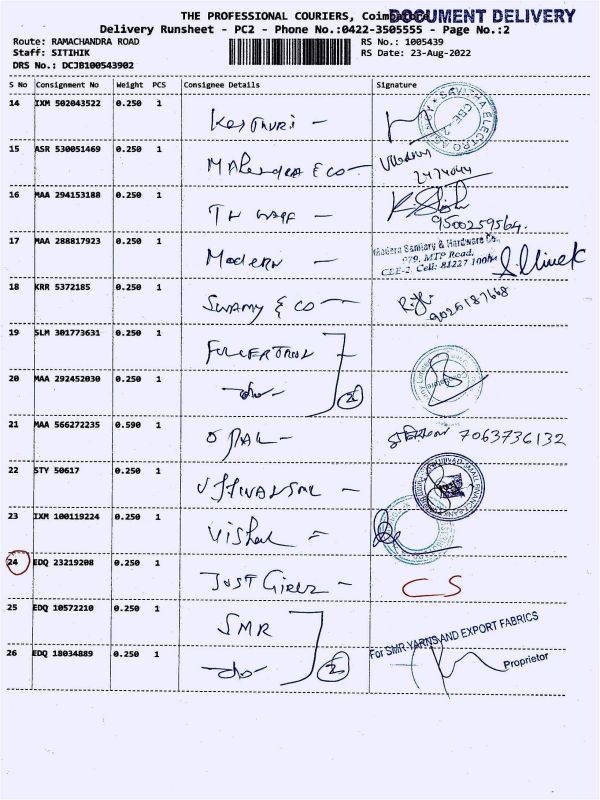 THE PROFESSIONAL COURIERS, Coimbatore
DOCUMENT DELIVERY
Delivery Runsheet - PC2 - Phone No.:0422-3505555 - Page No.:2
Route: RAMACHANDRA ROAD RS No.: 1005439
Staff: SITIHIK RS Date: 23-Aug-2022
DRS No.: DCJB100543902
S No Consignment No Weight PCS Consignee Details Signature
14 IXM 502043522 0.250 1 Kasthuri -
SAVITHA ELECTRO AGENCY CBE-2
15 ASR 530051469 0.250 1 Mahendra & Co -
2474044
16 MAA 294153188 0.250 1
9500259564.
17 MAA 288817923 0.250 1 Modern -
Modern Sanitary & Hardware Co.,
979, MTP Road,
CBE-2. Cell: 81227 10016
18 KRR 5372185 0.250 1 Swamy & Co -
9025187668
19 SLM 301773631 0.250 1
20 MAA 292452030 0.250 1 -do- 2
21 MAA 566272235 0.590 1 OPAL - 7063736132
22 STY 50617 0.250 1
23 IXM 100119224 0.250 1 Vishal -
24 EDQ 23219208 0.250 1 Just Girlz - CS
25 EDQ 10572210 0.250 1 SMR
For SMR YARNS AND EXPORT FABRICS
26 EDQ 18034889 0.250 1 -do- 2
Proprietor